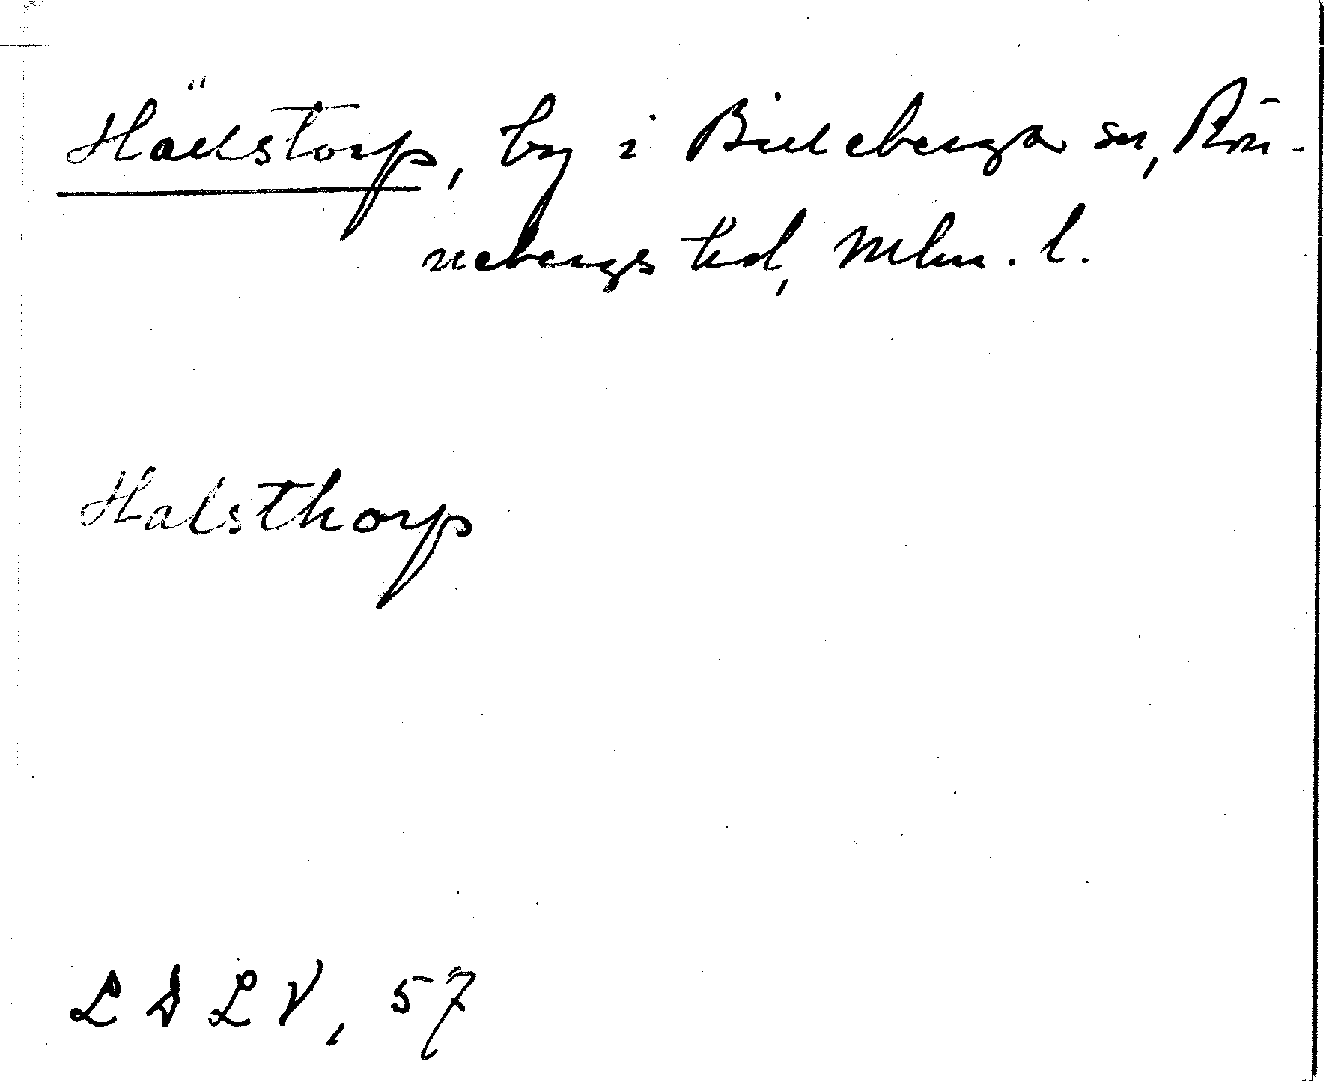 Hällstorp, by i Billeberga sn, Rön-
nebergs hd, Mlm. l.
Halsthorp
L D L V, 57